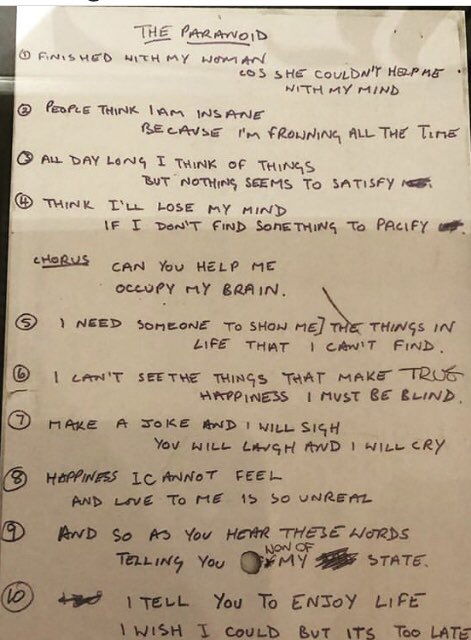 THE PARANOID
① FINISHED WITH MY WOMAN
COS SHE COULDN'T HELP ME
WITH MY MIND
② PEOPLE THINK I AM INSANE
BECAUSE I'M FROWNING ALL THE TIME
③ ALL DAY LONG I THINK OF THINGS
BUT NOTHING SEEMS TO SATISFY
④ THINK I'LL LOSE MY MIND
IF I DON'T FIND SOMETHING TO PACIFY
CHORUS CAN YOU HELP ME
OCCUPY MY BRAIN.
⑤ I NEED SOMEONE TO SHOW ME] THE THINGS IN
LIFE THAT I CAN'T FIND.
⑥ I CAN'T SEE THE THINGS THAT MAKE TRUE
HAPPINESS I MUST BE BLIND.
⑦ MAKE A JOKE AND I WILL SIGH
YOU WILL LAUGH AND I WILL CRY
⑧ HAPPINESS I CANNOT FEEL
AND LOVE TO ME IS SO UNREAL
⑨ AND SO AS YOU HEAR THESE WORDS
TELLING YOU NOW OF MY STATE.
⑩ I TELL YOU TO ENJOY LIFE
I WISH I COULD BUT ITS TOO LATE